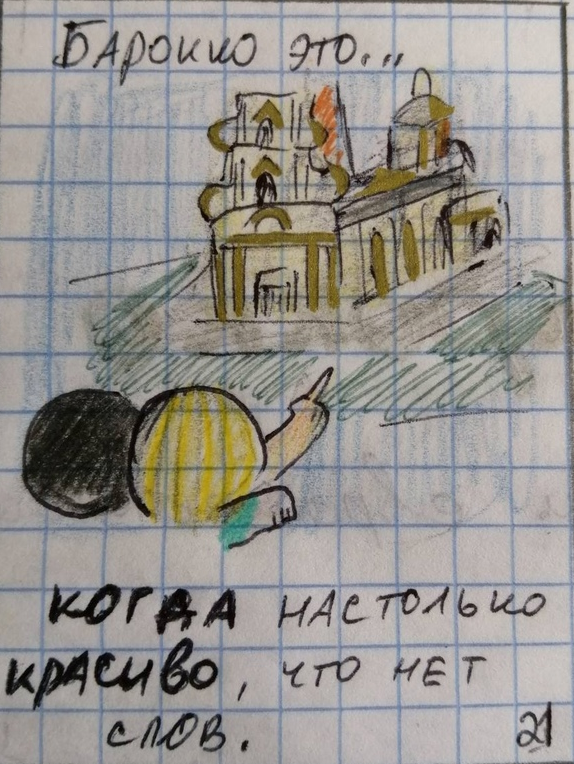 Барокко это...
когда настолько
красиво, что нет
слов.
21